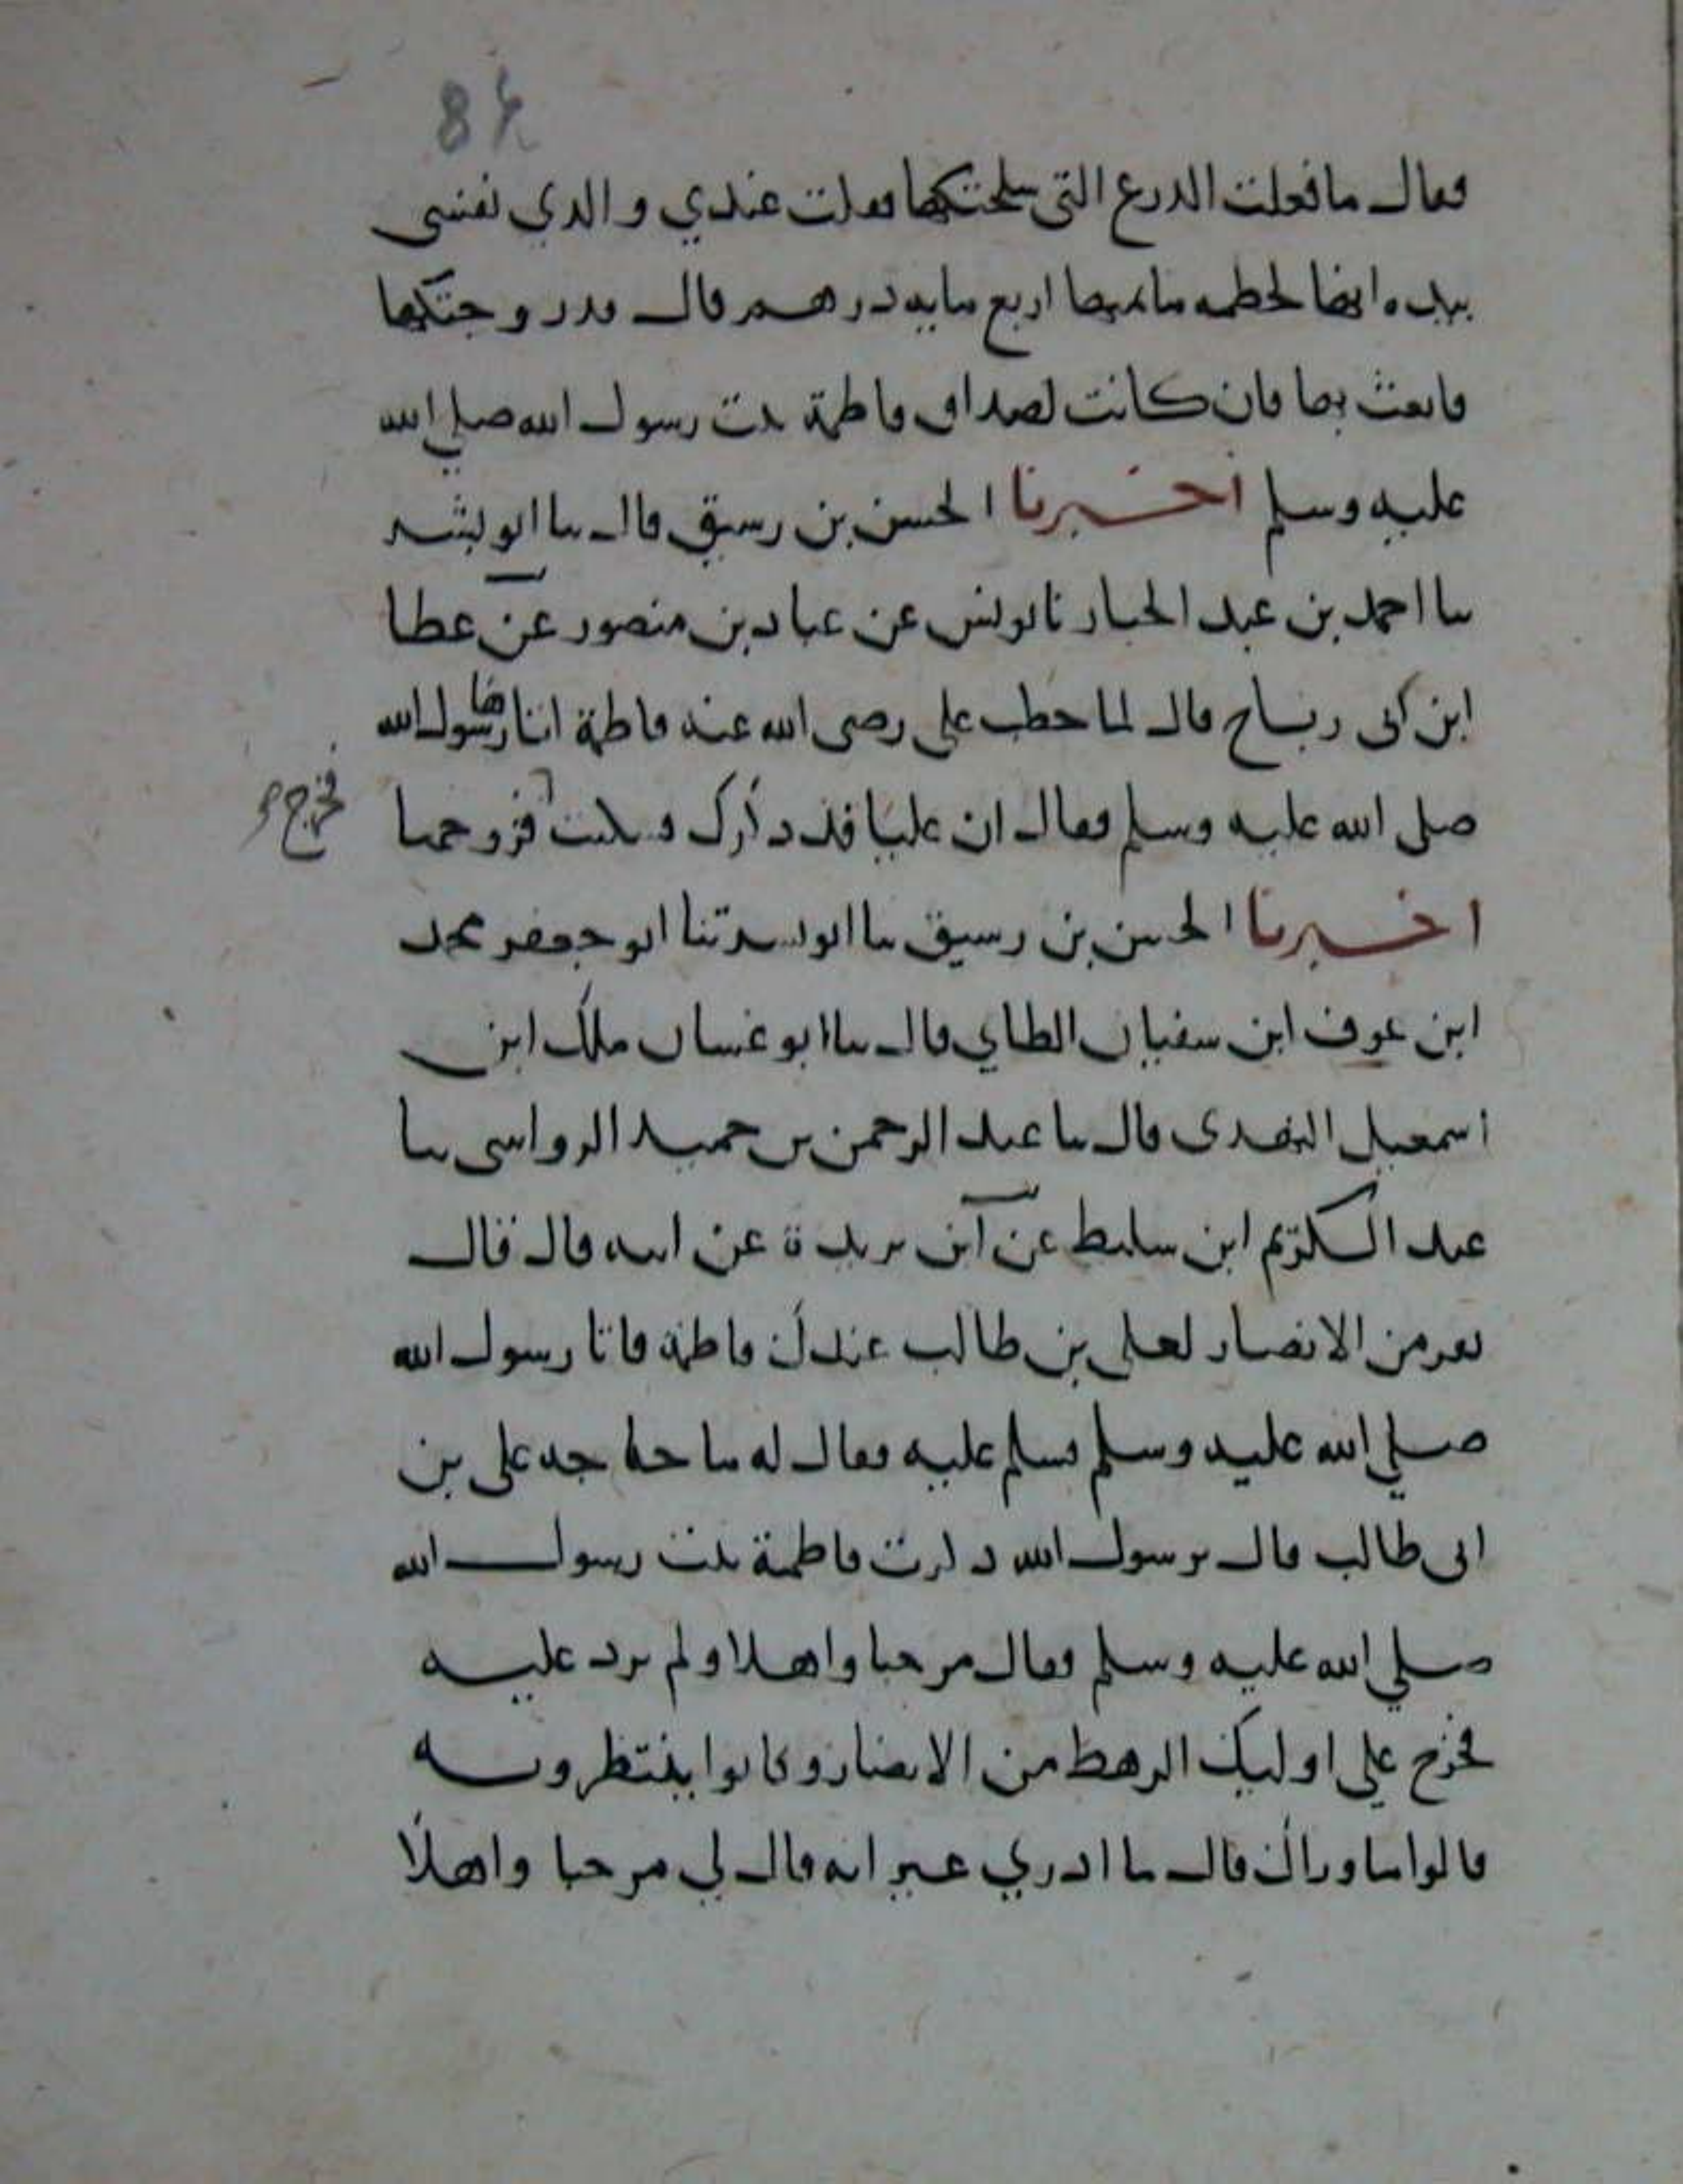 84
فقال ما فعلت الدرع التي سلحتكها فقلت عندي والذي نفسي
بيده انها لحطمه ما ثمنها اربع مايه درهم قال قد زوجتكها
فابعث بها فان كانت لصداق فاطمة بنت رسول الله صلي الله
عليه وسلم اخبرنا الحسن بن رسيق قال ثنا ابو بشر
ثنا احمد بن عبد الجبار نا يونس عن عباد بن منصور عن عطا
ابن ابى رباح قال لما خطب على رضى الله عنه فاطمة اتاها رسول الله
صلى الله عليه وسلم فقال ان عليا قد ذكرك فسكتت فزوجها
فخرج
اخبرنا الحسن بن رسيق ثنا ابو بشر ثنا ابو جعفر محمد
ابن عوف ابن سفيان الطاي قال ثنا ابو غسان ملك ابن
اسمعيل النهدى قال ثنا عبد الرحمن بن حميد الرواسى ثنا
عبد الكريم ابن سليط عن ابن بريدة عن ابيه قال قال
نفر من الانصار لعلى بن طالب عندك فاطمة فاتا رسول الله
صلي الله عليه وسلم فسلم عليه فقال له ما حاجه على بن
ابى طالب قال يرسول الله ذكرت فاطمة بنت رسول الله
صلي الله عليه وسلم فقال مرحبا واهلا ولم يزد عليه
فخرج علي اوليك الرهط من الانصار وكانوا ينتظرونه
قالوا ما وراك قال ما ادري غير انه قال لي مرحبا واهلا